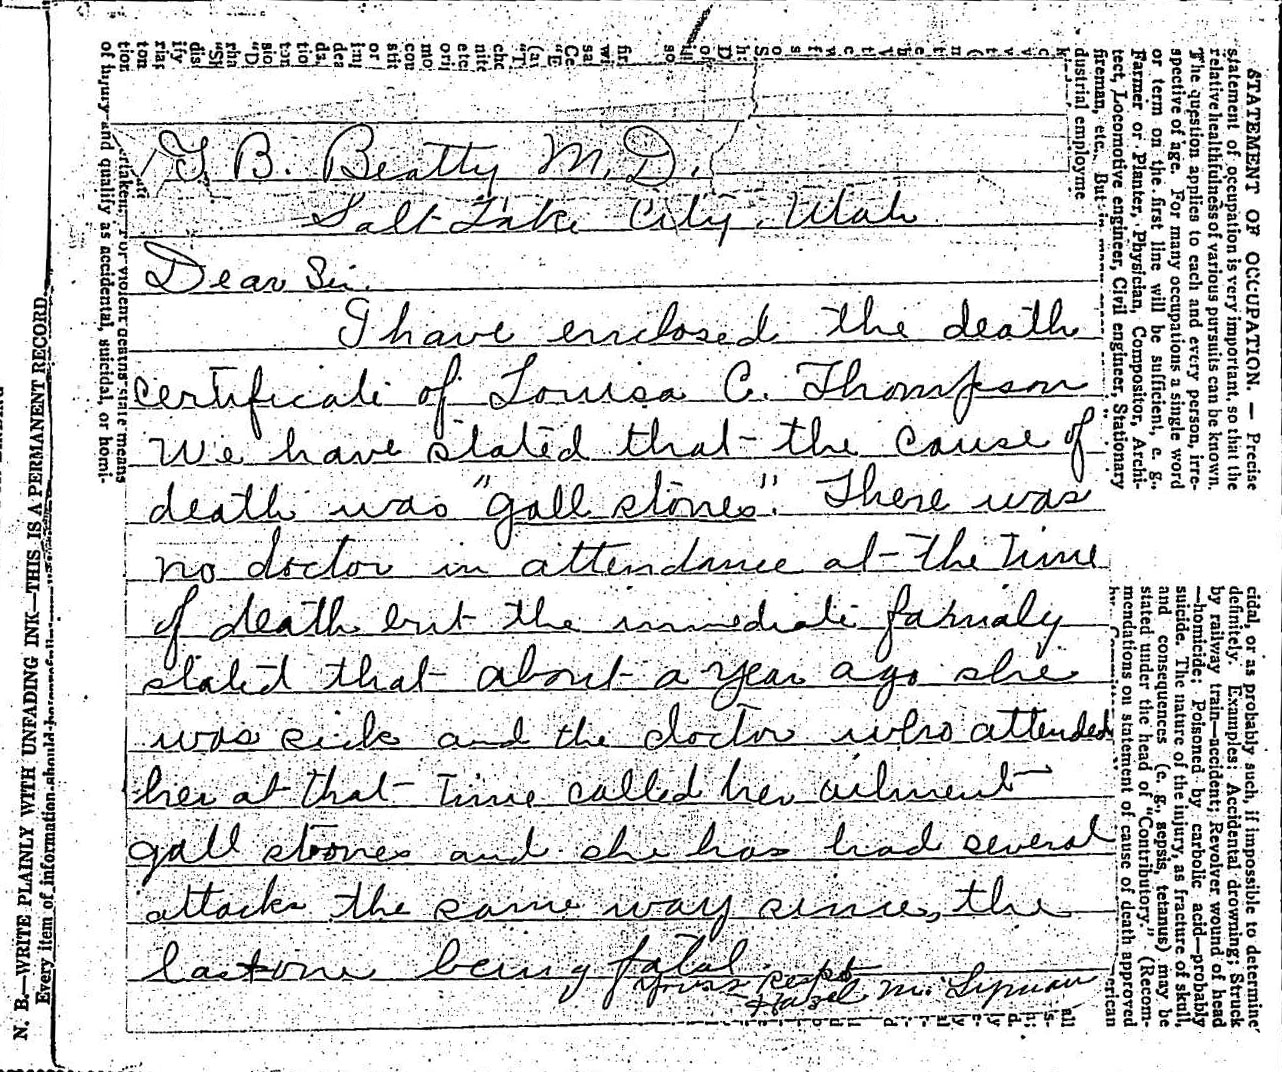 T. B. Beatty M. D.
Salt Lake City, Utah
Dear Sir.
I have enclosed the death
certificate of Louisa C. Thompson
We have stated that the cause of
death was "gall stones". There was
no doctor in attendance at the time
of death but the immediate famialy
stated that about a year ago she
was sick and the doctor who attended
her at that time called her ailment
gall stones and she has had several
attacks the same way since, the
last one being fatal.
Yours Respt
Hazel M.
STATEMENT OF OCCUPATION. — Precise
statement of occupation is very important, so that the
relative healthfulness of various pursuits can be known.
The question applies to each and every person, irre-
spective of age. For many occupations a single word
or term on the first line will be sufficient, e. g.,
Farmer or Planter, Physician, Compositor, Archi-
tect, Locomotive engineer, Civil engineer, Stationary
fireman, etc. But
dustrial employme
cidal, or as probably such, if impossible to determine
definitely. Examples: Accidental drowning; Struck
by railway train—accident; Revolver wound of head
—homicide; Poisoned by carbolic acid—probably
suicide. The nature of the injury, as fracture of skull,
and consequences (e. g., sepsis, tetanus) may be
stated under the head of "Contributory." (Recom-
mendations on statement of cause of death approved
erican
For violent deaths state means
of injury and qualify as accidental, suicidal, or homi-
N. B.—WRITE PLAINLY WITH UNFADING INK—THIS IS A PERMANENT RECORD
Every item of information should be